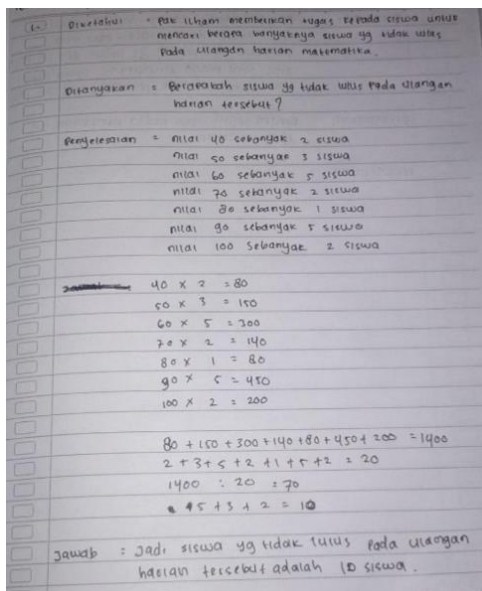 1. Diketahui : Pak Ilham memberikan tugas kepada siswa untuk
mencari berapa banyaknya siswa yg tidak lulus
pada ulangan harian matematika.
Ditanyakan : Berapakah siswa yg tidak lulus pada ulangan
harian tersebut?
Penyelesaian = nilai 40 sebanyak 2 siswa
nilai 50 sebanyak 3 siswa
nilai 60 sebanyak 5 siswa
nilai 70 sebanyak 2 siswa
nilai 80 sebanyak 1 siswa
nilai 90 sebanyak 5 siswa
nilai 100 sebanyak 2 siswa
40 x 2 = 80
50 x 3 = 150
60 x 5 = 300
70 x 2 = 140
80 x 1 = 80
90 x 5 = 450
100 x 2 = 200
80 + 150 + 300 + 140 + 80 + 450 + 200 = 1400
2 + 3 + 5 + 2 + 1 + 5 + 2 = 20
1400 : 20 = 70
5 + 3 + 2 = 10
Jawab : Jadi siswa yg tidak lulus pada ulangan
harian tersebut adalah 10 siswa.